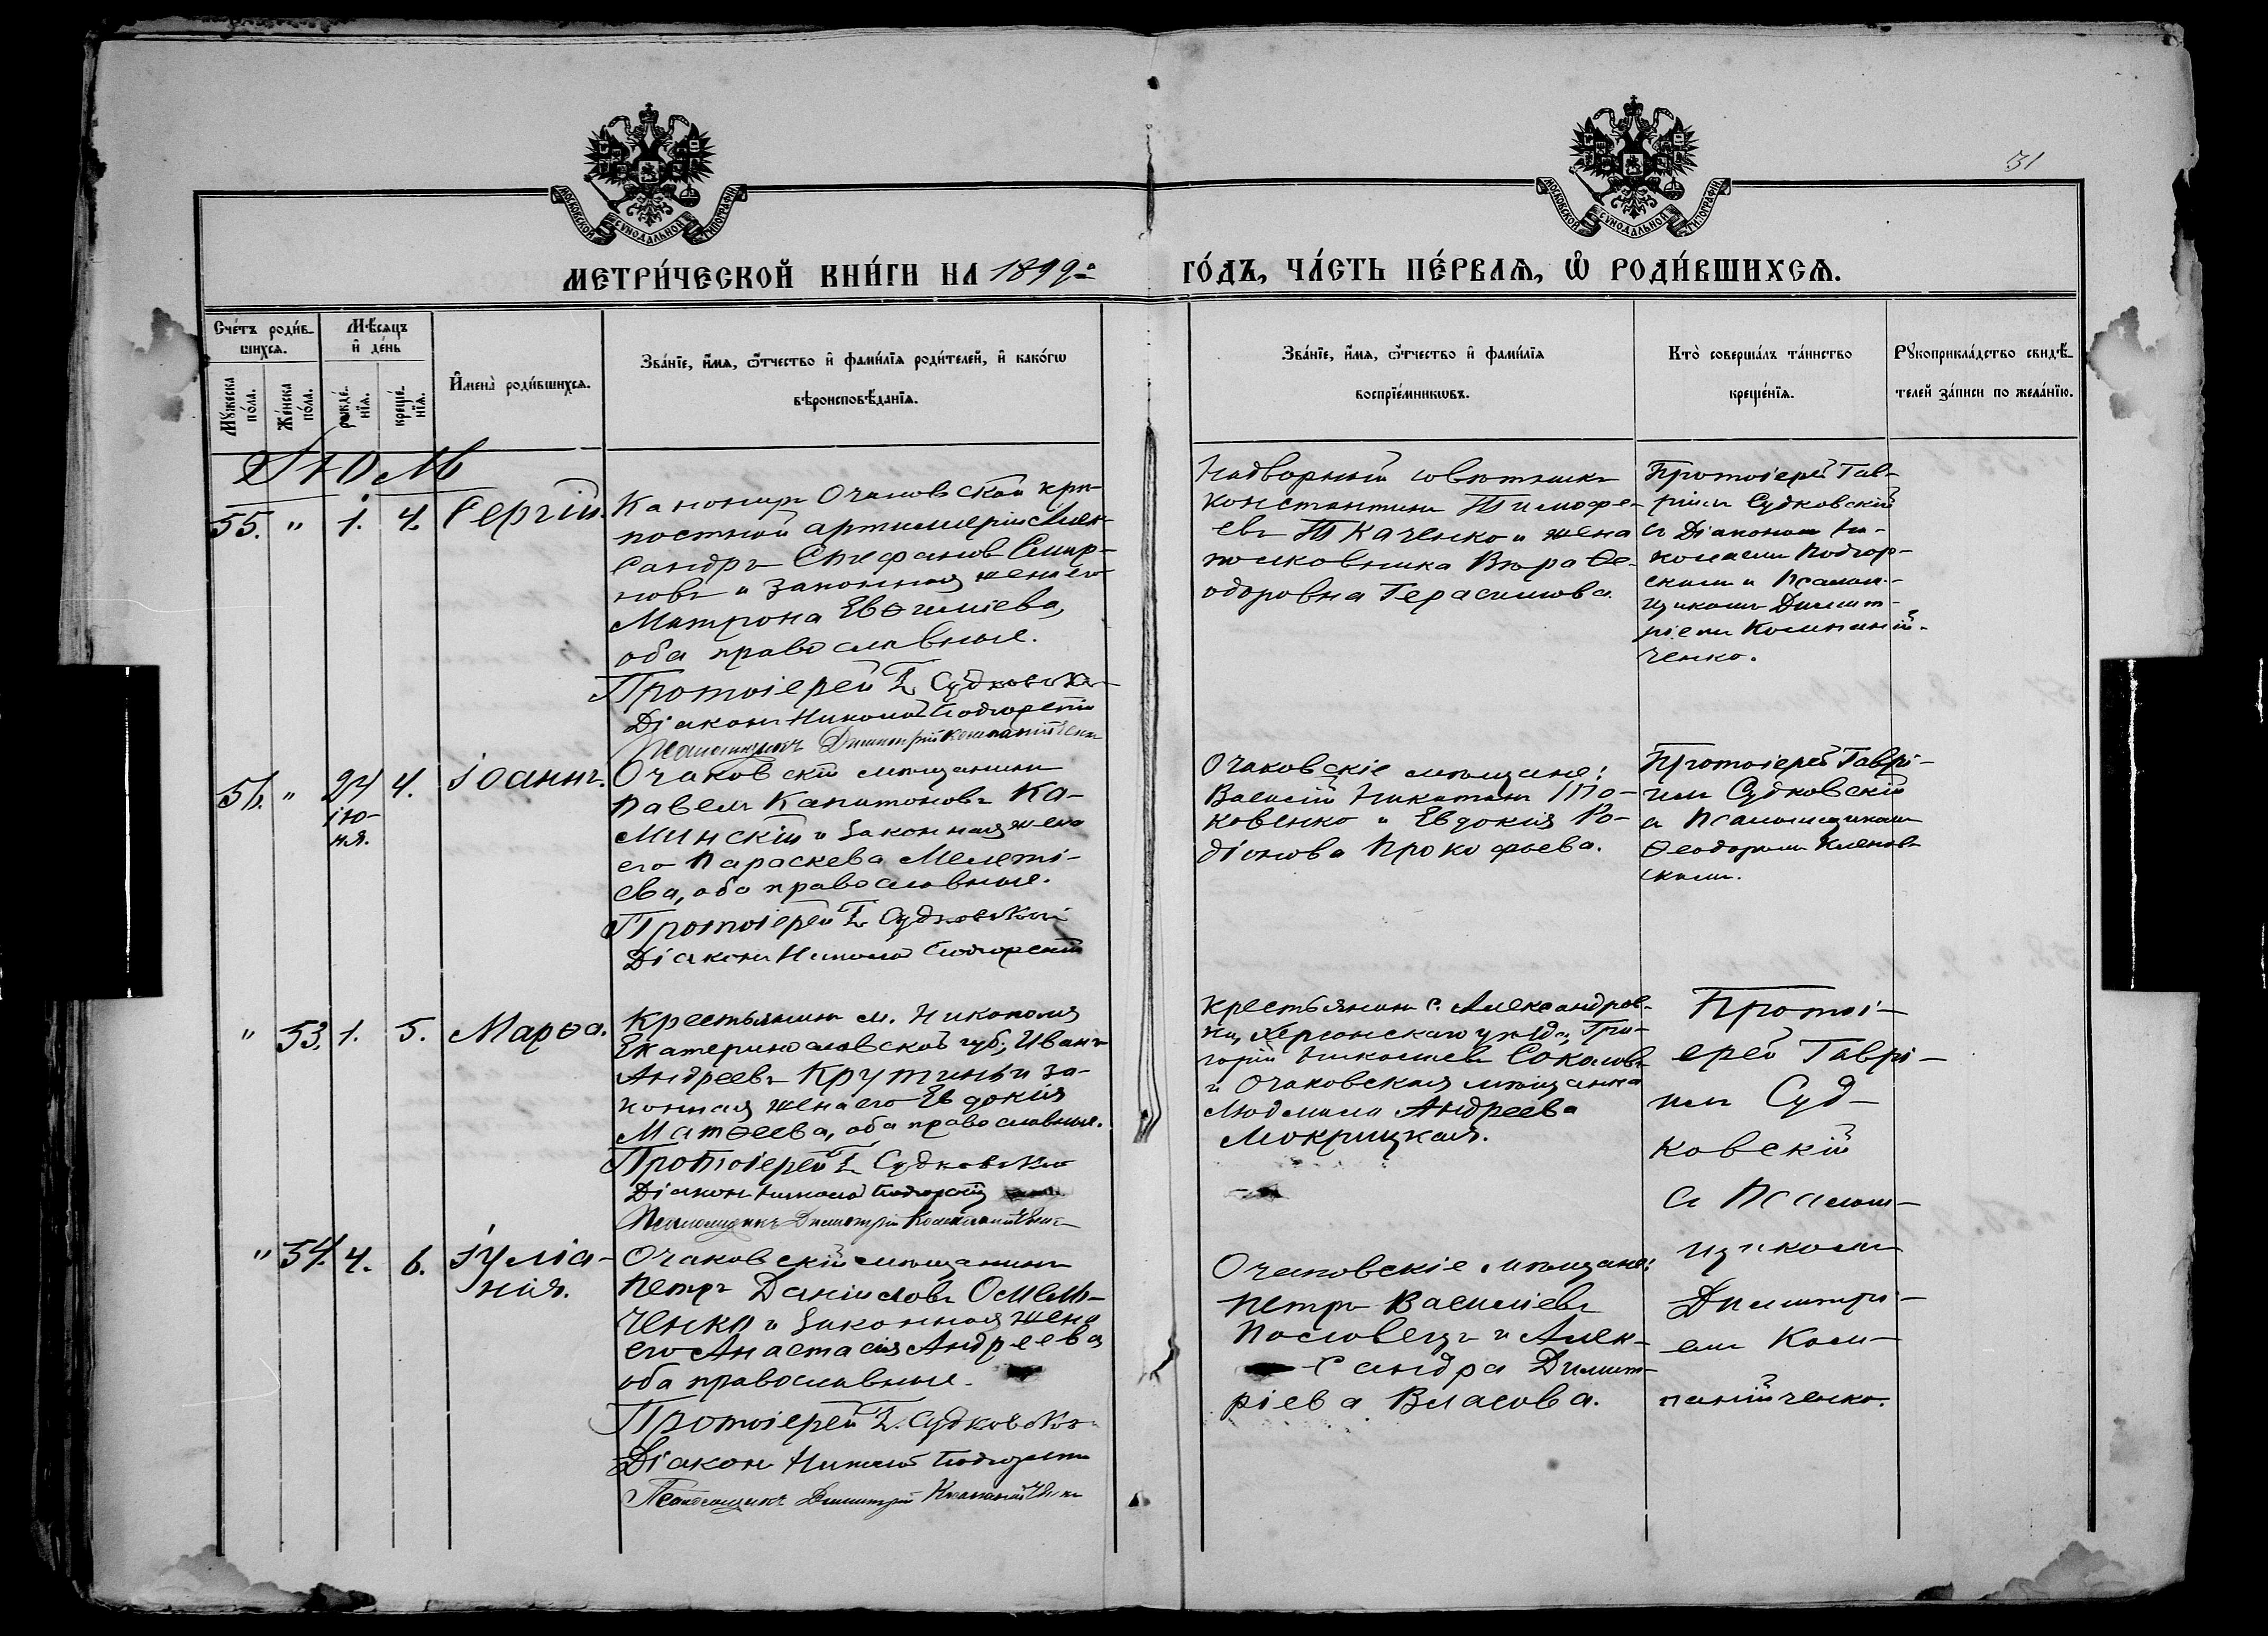 31
МОСКОВСКОЙ СѴНОДАЛЬНОЙ ТИПОГРАФІИ
МОСКОВСКОЙ СѴНОДАЛЬНОЙ ТИПОГРАФІИ
МЕТРИ́ЧЕСКОЙ КНИ́ГИ НА 1899й
ГО́ДЪ, ЧА́СТЬ ПЕ́РВАѦ, Ѡ҆ РОДИ́ВШИХСѦ.
Сче́тъ роди́в-
шихсѧ.
Мѣ́сѧцъ
и҆ де́нь
Мꙋ́жеска
по́ла.
Же́нска
по́ла.
рожде́-
нїѧ.
креще́-
нїѧ.
И҆мена̀ роди́вшихсѧ.
Зва́нїе, и҆́мѧ, ѻ҆́тчество и҆ фамі́лїѧ роди́телей, и҆ како́гѡ
вѣроисповѣ́данїѧ.
Зва́нїе, и҆́мѧ, ѻ҆́тчество и҆ фамі́лїѧ
воспрїе́мникѡвъ.
Кто̀ соверша́лъ та́инство
креще́нїѧ.
Рꙋкоприкла́дство свидѣ́-
телей за́писи по жела́нїю.
Іюль
55. " 1. 4. Сергій.
Канониръ Очаковской крѣ-
постной артиллеріи Алек-
сандръ Стефановъ Смир-
новъ и законная жена его
Матрона Евѳиміева,
оба православные.
Протоіерей Г. Судковскій
Діаконъ Николай Подгорскій
Псаломщикъ Димитрій Компанійченко
Надворный совѣтникъ
Константинъ Тимофе-
евъ Ткаченко и жена
полковника Вѣра Ѳе-
одоровна Герасимова.
Протоіерей Гав-
ріилъ Судковскій
съ Діакономъ Ни-
колаемъ Подгор-
скимъ и Псалом-
щикомъ Димит-
ріемъ Компаній-
ченко.
56. " 24 4. Іоаннъ.
ію-
ня.
Очаковскій мѣщанинъ
Павелъ Капитоновъ Ка-
минскій и законная жена
его Параскева Мелеті-
ева, оба православные.
Протоіерей Г. Судковскій
Діаконъ Николай Подгорскій
Очаковскіе мѣщане:
Василій Никитинъ
и Евдокія Ро-
діонова Прокофьева.
Протоіерей Гаврі-
илъ Судковскій
съ Псаломщикомъ
Ѳеодоромъ Кленов-
скимъ.
" 53. 1. 5. Марѳа.
Крестьянинъ м. Никополя
Екатеринославской губ., Иванъ
Андреевъ Крутинь и за-
конная жена его Евдокія
Матѳеева, оба православные.
Протоіерей Г. Судковскій
Діаконъ Николай Подгорскій
Псаломщикъ Димитрій Компанійченко
Крестьянинъ с. Александров-
ки, Херсонскаго уѣзда, Гри-
горій Николаевъ Соколовъ
и Очаковская мѣщанка
Людмила Андреева
Мокрицкая.
Протоі-
ерей Гаврі-
илъ Суд-
ковскій
съ Псалом-
щикомъ
Димитрі-
емъ Ком-
панійченко.
" 54. 4. 6. Іуліа-
нія.
Очаковскій мѣщанинъ
Петръ Даніиловъ Омель-
ченко и законная жена
его Анастасія Андреева
оба православные.
Протоіерей Г. Судковскій
Діаконъ Николай Подгорскій
Псаломщикъ Димитрій Компанійченко
Очаковскіе мѣщане:
Петръ Василіевъ
Пословецъ и Алек-
сандра Димит-
ріева Власова.